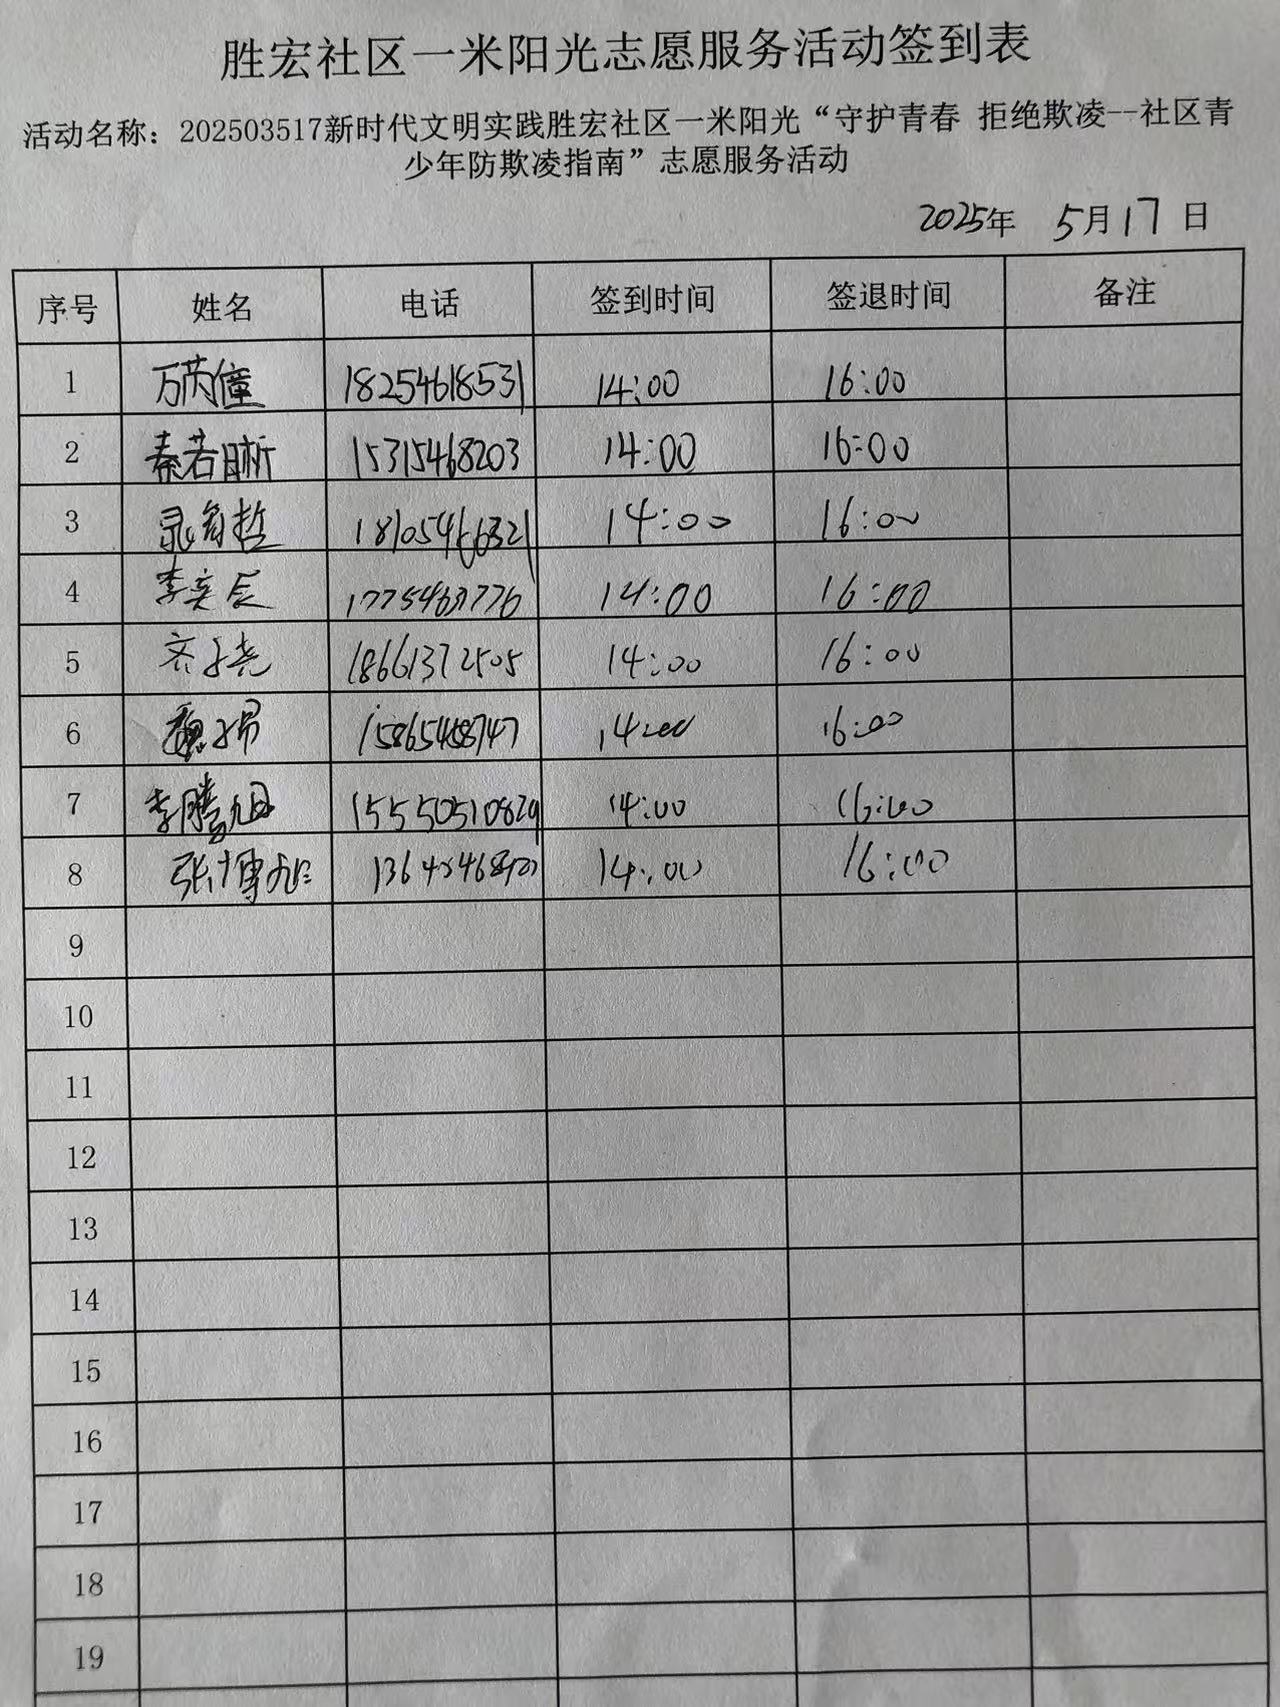 胜宏社区一米阳光志愿服务活动签到表
活动名称：202503517新时代文明实践胜宏社区一米阳光“守护青春 拒绝欺凌--社区青
少年防欺凌指南”志愿服务活动
2025年 5月17日
序号 姓名 电话 签到时间 签退时间 备注
1 万芮僮 18254618531 14:00 16:00
2 秦若晰 15315468203 14:00 16:00
3 18105466321 14:00 16:00
4 李奕辰 14:00 16:00
5 齐子尧 18661372505 14:00 16:00
6 魏子昂 15865458747 14:00 16:00
7 李腾旭 15550510829 14:00 16:00
8 张博旭 14:00 16:00
9
10
11
12
13
14
15
16
17
18
19